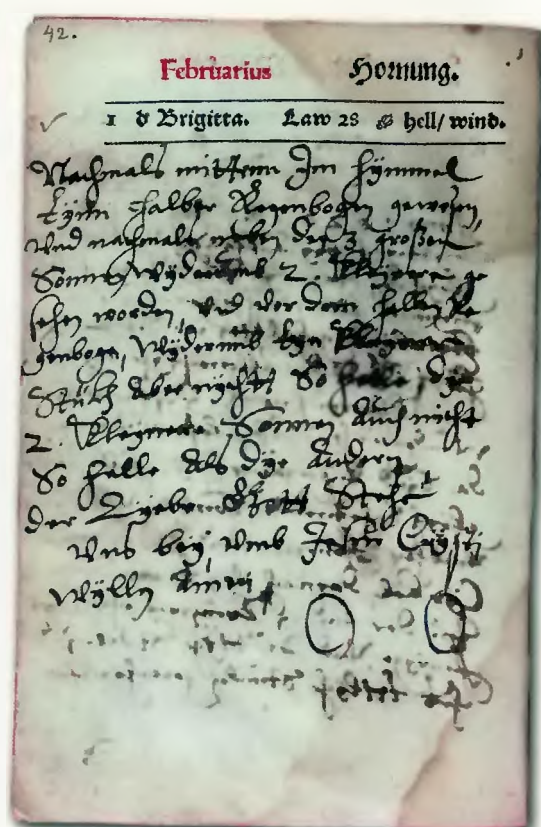 42.
Februarius Hornung.
1 d Brigitta. Law 28 hell/ wind.
Nachmals mitten Im hÿmmel
Eÿn halber Regenbogen gewesen,
vnd nachmals neben der 3 großen
Sonnen wÿderumb 2. kleynere ge
sehen worden, vnd vor dem halben Re
genbogen, wÿderumb Eyn kleynere
Aber nÿcht So helle, dye
2. kleynere Sonnen Auch nicht
So helle Als dÿe Andern,
der Lyebe Gott Stehe
vns beÿ vmb Jesu Cristi
wÿlln Amen